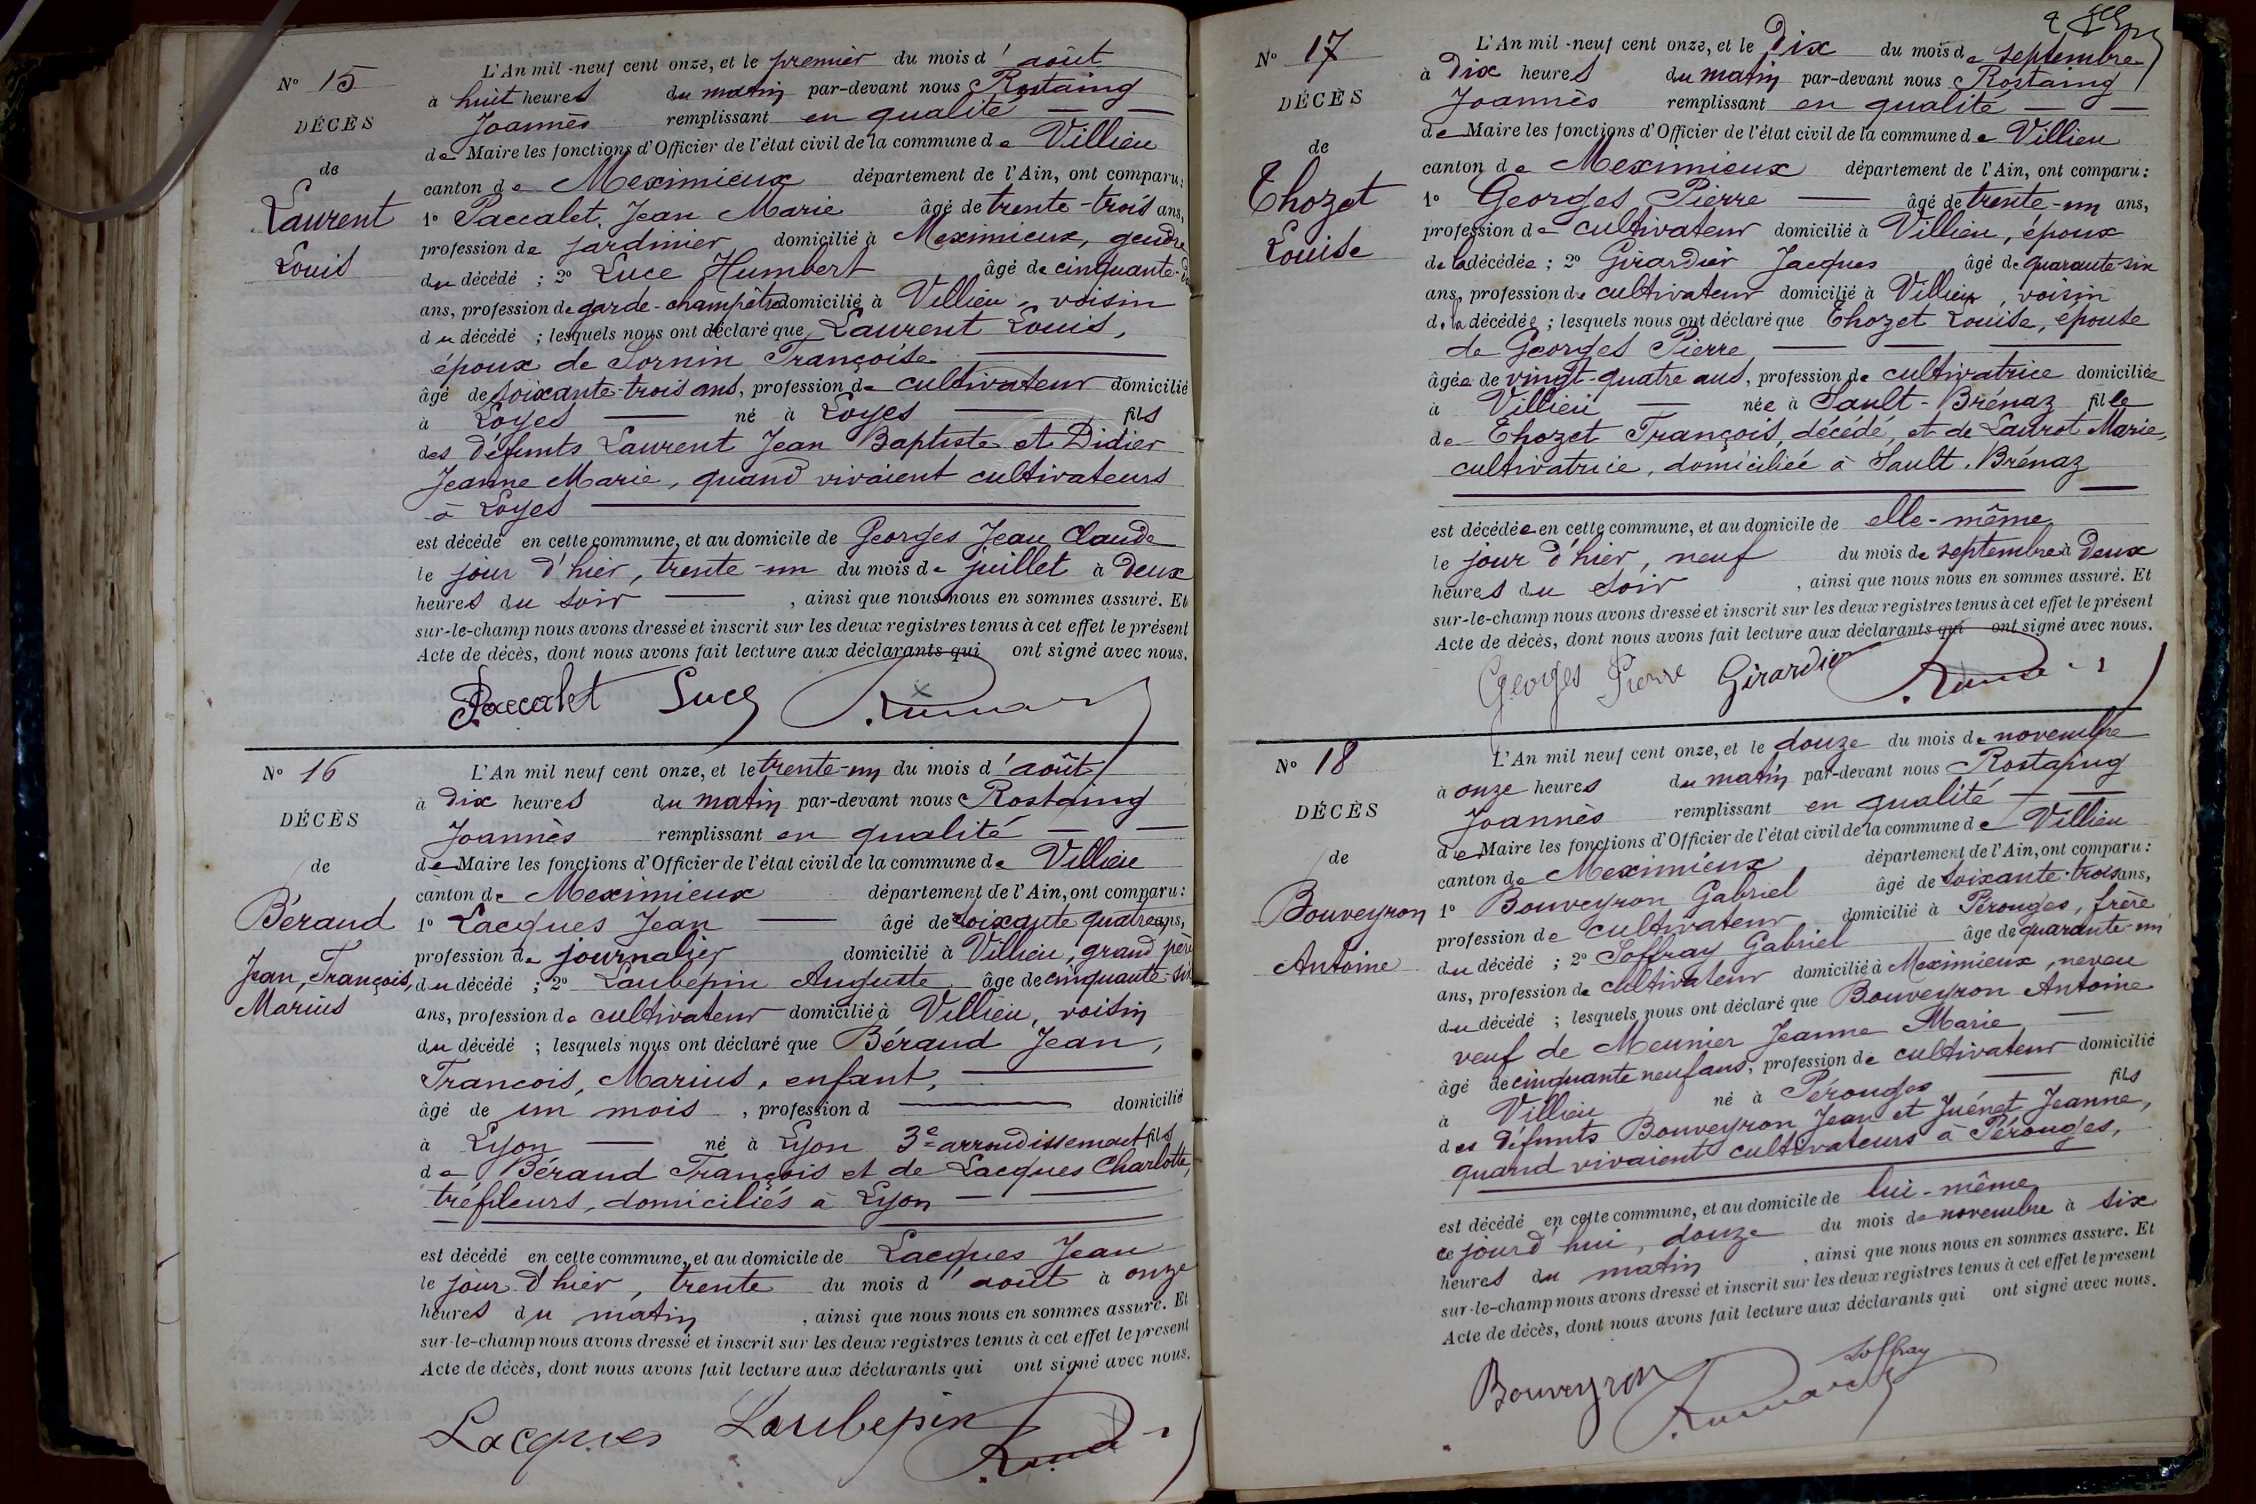 N° 15
DÉCÈS
de
Laurent
Louis
L'An mil-neuf cent onze, et le premier du mois d'août
à huit heures du matin par-devant nous Rostaing
Joannès remplissant en qualité
de Maire les fonctions d'Officier de l'état civil de la commune de Villieu
canton de Meximieux département de l'Ain, ont comparu:
1° Paccalet Jean Marie âgé de trente-trois ans,
profession de jardinier domicilié à Meximieux, gendre
du décédé ; 2° Luce Humbert âgé de cinquante-
ans, profession de garde-champêtre domicilié à Villieu, voisin
du décédé ; lesquels nous ont déclaré que Laurent Louis,
époux de Sornin Françoise
âgé de soixante-trois ans, profession de cultivateur domicilié
à Loyes né à Loyes fils
des défunts Laurent Jean Baptiste et Didier
Jeanne Marie, quand vivaient cultivateurs
à Loyes
est décédé en cette commune, et au domicile de Georges Jean Claude
le jour d'hier, trente-un du mois de juillet à deux
heures du soir , ainsi que nous nous en sommes assuré. Et
sur-le-champ nous avons dressé et inscrit sur les deux registres tenus à cet effet le présent
Acte de décès, dont nous avons fait lecture aux déclarants qui ont signé avec nous.
Paccalet Luce
N° 16
DÉCÈS
de
Béraud
Jean, François,
Marius
L'An mil neuf cent onze, et le trente-un du mois d'août
à dix heures du matin par-devant nous Rostaing
Joannès remplissant en qualité
de Maire les fonctions d'Officier de l'état civil de la commune de Villieu
canton de Meximieux département de l'Ain, ont comparu:
1° Lacques Jean âgé de soixante quatre ans,
profession de journalier domicilié à Villieu, grand père
du décédé ; 2° Laubépin Auguste âgé de cinquante-six
ans, profession de cultivateur domicilié à Villieu, voisin
du décédé ; lesquels nous ont déclaré que Béraud Jean,
Francois, Marius, enfant,
âgé de un mois , profession d domicilié
à Lyon né à Lyon 3e arrondissement fils
de Béraud François et de Lacques Charlotte,
tréfileurs, domiciliés à Lyon
est décédé en cette commune, et au domicile de Lacques Jean
le jour d'hier, trente du mois d'août à onze
heures du matin , ainsi que nous nous en sommes assuré. Et
sur-le-champ nous avons dressé et inscrit sur les deux registres tenus à cet effet le présent
Acte de décès, dont nous avons fait lecture aux déclarants qui ont signé avec nous.
Lacques Laubepin
N° 17
DÉCÈS
de
Thozet
Louise
L'An mil-neuf cent onze, et le dix du mois de septembre
à dix heures du matin par-devant nous Rostaing
Joannès remplissant en qualité
de Maire les fonctions d'Officier de l'état civil de la commune de Villieu
canton de Meximieux département de l'Ain, ont comparu:
1° Georges Pierre âgé de trente-un ans,
profession de cultivateur domicilié à Villieu, époux
de la décédée ; 2° Girardier Jacques âgé de quarante-six
ans, profession de cultivateur domicilié à Villieu, voisin
de la décédée ; lesquels nous ont déclaré que Thozet Louise, épouse
de Georges Pierre
âgée de vingt-quatre ans, profession de cultivatrice domiciliée
à Villieu née à Sault-Brénaz fille
de Thozet François, décédé et de Laurot Marie,
cultivatrice, domiciliée à Sault-Brénaz
est décédée en cette commune, et au domicile de elle-même
le jour d'hier, neuf du mois de septembre à deux
heures du soir , ainsi que nous nous en sommes assuré. Et
sur-le-champ nous avons dressé et inscrit sur les deux registres tenus à cet effet le présent
Acte de décès, dont nous avons fait lecture aux déclarants qui ont signé avec nous.
Georges Pierre Girardier
N° 18
DÉCÈS
de
Bouveyron
Antoine
L'An mil neuf cent onze, et le douze du mois de novembre
à onze heures du matin par-devant nous Rostaing
Joannès remplissant en qualité
de Maire les fonctions d'Officier de l'état civil de la commune de Villieu
canton de Meximieux département de l'Ain, ont comparu:
1° Bouveyron Gabriel âgé de soixante-trois ans,
profession de cultivateur domicilié à Pérouges, frère
du décédé ; 2° Soffray Gabriel âgé de quarante-un
ans, profession de cultivateur domicilié à Meximieux, neveu
du décédé ; lesquels nous ont déclaré que Bouveyron Antoine
veuf de Meunier Jeanne Marie
âgé de cinquante neuf ans, profession de cultivateur domicilié
à Villieu né à Pérouges fils
des défunts Bouveyron Jean et Juénet Jeanne,
quand vivaient cultivateurs à Pérouges,
est décédé en cette commune, et au domicile de lui-même
ce jourd'hui, douze du mois de novembre à six
heures du matin , ainsi que nous nous en sommes assuré. Et
sur-le-champ nous avons dressé et inscrit sur les deux registres tenus à cet effet le présent
Acte de décès, dont nous avons fait lecture aux déclarants qui ont signé avec nous.
Bouveyron Soffray